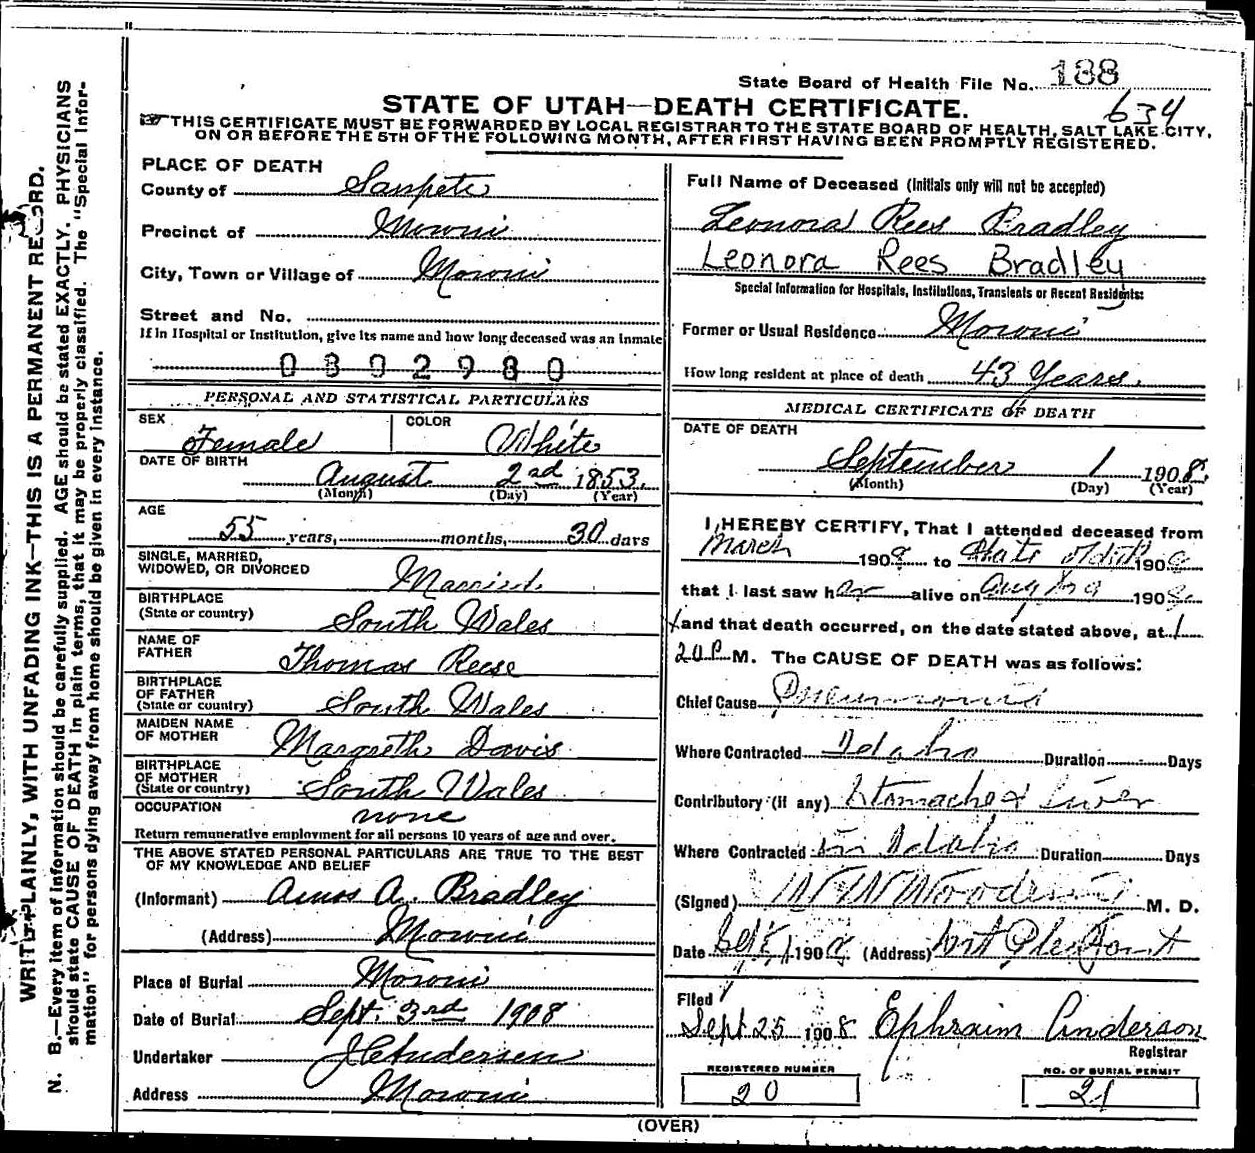 State Board of Health File No. 188
634
STATE OF UTAH—DEATH CERTIFICATE.
THIS CERTIFICATE MUST BE FORWARDED BY LOCAL REGISTRAR TO THE STATE BOARD OF HEALTH, SALT LAKE CITY,
ON OR BEFORE THE 5TH OF THE FOLLOWING MONTH, AFTER FIRST HAVING BEEN PROMPTLY REGISTERED.
WRITE PLAINLY, WITH UNFADING INK—THIS IS A PERMANENT RECORD.
N. B.—Every item of information should be carefully supplied. AGE should be stated EXACTLY. PHYSICIANS
should state CAUSE OF DEATH in plain terms, that it may be properly classified. The "Special Infor-
mation" for persons dying away from home should be given in every instance.
PLACE OF DEATH
County of Sanpete
Precinct of Moroni
City, Town or Village of Moroni
Street and No.
If in Hospital or Institution, give its name and how long deceased was an Inmate
0802980
PERSONAL AND STATISTICAL PARTICULARS
SEX Female COLOR White
DATE OF BIRTH
August 2nd 1853
(Month) (Day) (Year)
AGE
55 years, months, 30 days
SINGLE, MARRIED,
WIDOWED, OR DIVORCED Married
BIRTHPLACE
(State or country) South Wales
NAME OF
FATHER Thomas Reese
BIRTHPLACE
OF FATHER
(State or country) South Wales
MAIDEN NAME
OF MOTHER Margreth Davis
BIRTHPLACE
OF MOTHER
(State or country) South Wales
OCCUPATION
none
Return remunerative employment for all persons 10 years of age and over.
THE ABOVE STATED PERSONAL PARTICULARS ARE TRUE TO THE BEST
OF MY KNOWLEDGE AND BELIEF
(Informant) Amos A. Bradley
(Address) Moroni
Place of Burial Moroni
Date of Burial Sept. 3rd 1908
Undertaker
Address Moroni
Full Name of Deceased (Initials only will not be accepted)
Leonora Rees Bradley
Leonora Rees Bradley
Special Information for Hospitals, Institutions, Transients or Recent Residents:
Former or Usual Residence Moroni
How long resident at place of death 43 Years.
MEDICAL CERTIFICATE OF DEATH
DATE OF DEATH
September 1 1908
(Month) (Day) (Year)
I HEREBY CERTIFY, That I attended deceased from
March 1908 to date 190
that I last saw her alive on Aug 190
and that death occurred, on the date stated above, at 1
20 P M. The CAUSE OF DEATH was as follows:
Chief Cause Pneumonia
Where Contracted Idaho Duration Days
Contributory (if any) Stomach & Liver
Where Contracted In Idaho Duration Days
(Signed) M. D.
Date Sept 1908 (Address) Mt Pleasant
Filed
Sept 25 1908 Ephraim Anderson
Registrar
REGISTERED NUMBER
20
NO. OF BURIAL PERMIT
21
(OVER)